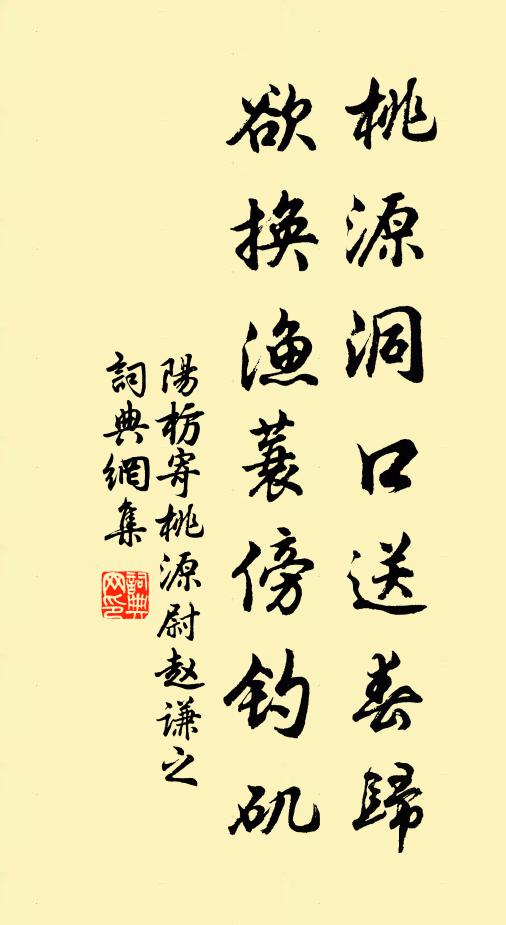 桃源洞口送春歸
欲換漁蓑傍钓矶
陽枋寄桃源尉赵谦之
詞典網集
詞典
网印